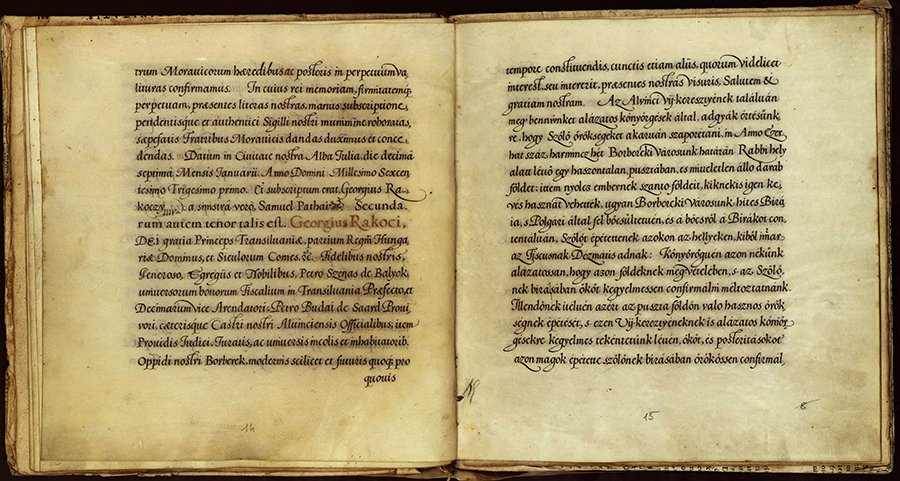 trum Morauicorum hæredibus ac posteris in perpetuum va,
lituras confirmamus. In cuius rei memoriam, firmitatemq;
perpetuam, præsentes literas nostras, manus subscriptione,
pendentisque et authentici Sigilli nostri munimine roboratas,
sæpefatis Fratribus Morauicis dandas duximus et conce,
dendas. Datum in Ciuitate nostra Alba Iulia, die decima
septima Mensis Ianuarii. Anno Domini Millesimo Sexcen
tesimo Trigesimo primo. Et subscriptum erat, Georgius Ra,
koczy, a sinistra verò, Samuel Pathai Secunda,
rum autem tenor talis est. Georgius Rakoci,
Dei gratia Princeps Transiluaniæ, partium Regni Hunga
riæ Dominus, et Siculorum Comes, &. Fidelibus nostris,
Generoso, Egregiis et Nobilibus, Petro Szenas de Balyok,
vniuersorum bonorum Fiscalium in Transiluania Præfecto, et
Decimarum vice Arendatori, Petro Budai de Saard Proui
vori, cæterisque Castri nostri Aluinciensis Officialibus, item
Prouidis Iudici, Iuratis, ac vniuersis incolis et inhabitatorib.
Oppidi nostri Borberek, modernis scilicet et futuris quoq; pro
quouis
14
tempore constituendis, cunctis etiam aliis, quorum videlicet
interest, seu intererit, præsentes nostras visuris, Salutem &
gratiam nostram. Az Alvinci Vij keresztyének találuán
meg bennünket alázatos könyörgések által, adgyák értésünk,
re, hogy Szőlő örökségeket akaruán szaporitani, in Anno Ezer
hat száz, harmincz hét Borbereki Városunk határán Rabbi hely
alatt léuő egy haszontalan, pusztában, es mueletlen álló darab
földet: item nyoles embernek szanto földeit, kiknek is igen ke,
vés hasznát vehették, ugyan Borbereki Városunk hites Birá
ia, s Polgari által fel böcsültetuén, és a böcsról a Birákot con,
tentáluán, Szőlőt épétettenek azokon az hellyeken, kiből már
az Fiscusnak Dezmátis adnak: Könyörögüen azon nékünk
alázatossan, hogy azon földeknek megvételében, s az Szőlő,
nek birásában őkőt kegyelmessen confirmálni méltoztatnánk.
Illendőnek itéluén azért az puszta földön valo hasznos örök
ségnek épétését, s ezen Vij keresztyéneknek is alázatos köniör,
gésekre kegyelmes tekéntetünk léuén, őkőt, és posteritásokot
azon magok épétette szőlőnek birásában örökössen confirmál,
15
8